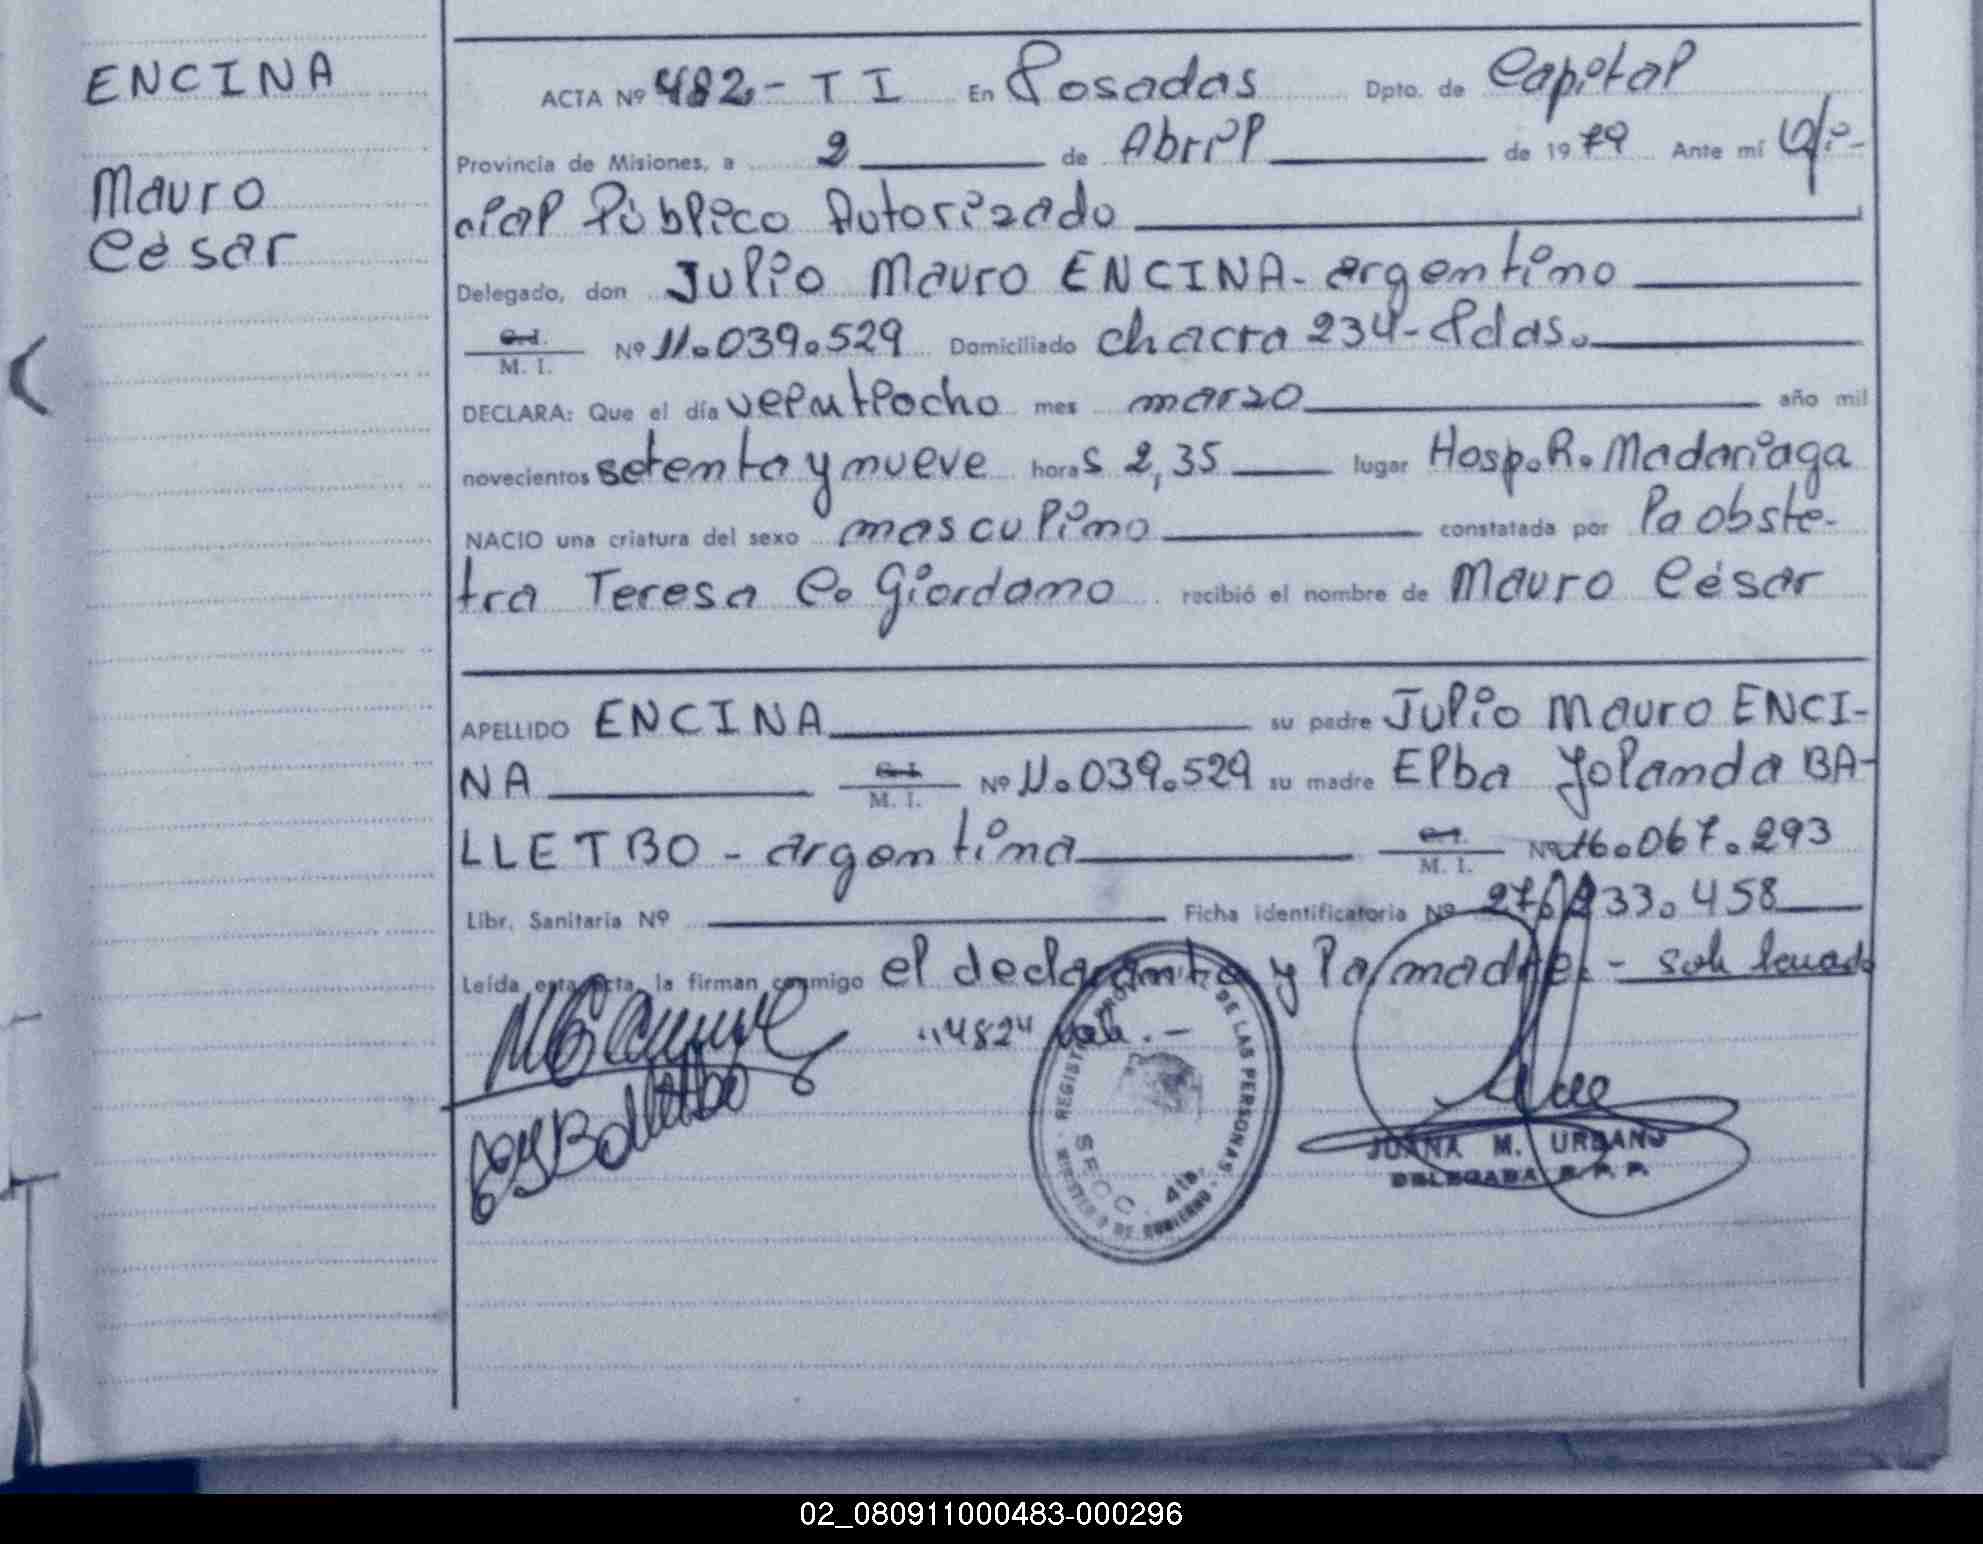 ENCINA
Mauro
César
ACTA Nº 482 - T I En Posadas Dpto. de Capital
Provincia de Misiones, a 2 de Abril de 1979 Ante mí Ofi-
cial Público Autorizado
Delegado, don Julio Mauro ENCINA - argentino
C.I.
M. I. Nº 11.039.529 Domiciliado chacra 234 - Pdas.
DECLARA: Que el día veintiocho mes marzo año mil
novecientos setenta y nueve horas 2,35 lugar Hosp. R. Madariaga
NACIO una criatura del sexo masculino constatada por la obste-
tra Teresa C. Giordano recibió el nombre de Mauro César
APELLIDO ENCINA su padre Julio Mauro ENCI-
NA C.I. M. I. Nº 11.039.529 su madre Elba Yolanda BA-
LLETBO - argentina C.I. M. I. Nº 16.067.293
Libr. Sanitaria Nº Ficha identificatoria Nº 27.233.458
Leída esta acta, la firman conmigo el declarante y la madre. - sob borrado
"482" vale. -
REGISTRO PROVINCIAL DE LAS PERSONAS
MINISTERIO DE GOBIERNO
SECC. 4ta.
JUANA M. URBANO
DELEGADA R. P. P.
02_080911000483-000296